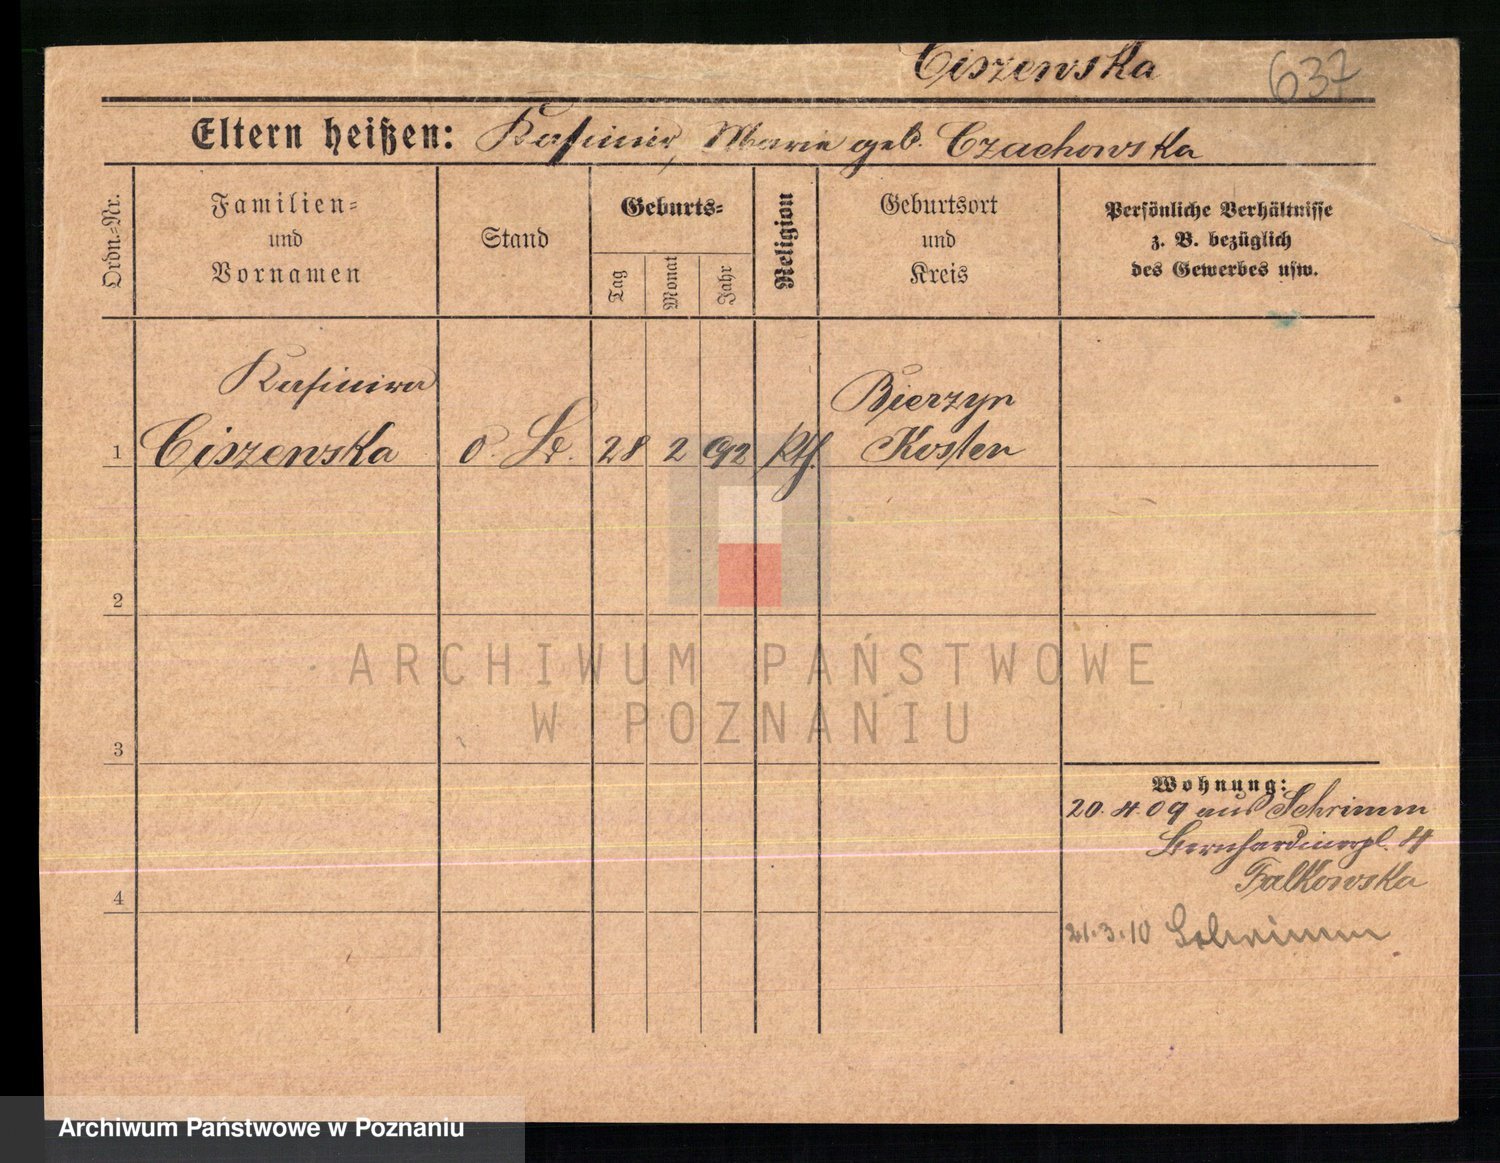 Ciszewska 637
Eltern heißen: Kasimir, Marie geb. Czachowska
Ordn.-Nr.
Familien-
und
Vornamen
Stand
Geburts-
Tag
Monat
Jahr
Religion
Geburtsort
und
Kreis
Persönliche Verhältnisse
z. B. bezüglich
des Gewerbes usw.
Kasimira
1 Ciszewska o. St. 28 2 92 kth. Bierzyn
Kosten
2
3
4
Wohnung:
20.4.09 aus Schrimm
Bernhardinerpl. 4
Falkowska
21.3.10 Schrimm
ARCHIWUM PAŃSTWOWE
W POZNANIU
Archiwum Państwowe w Poznaniu